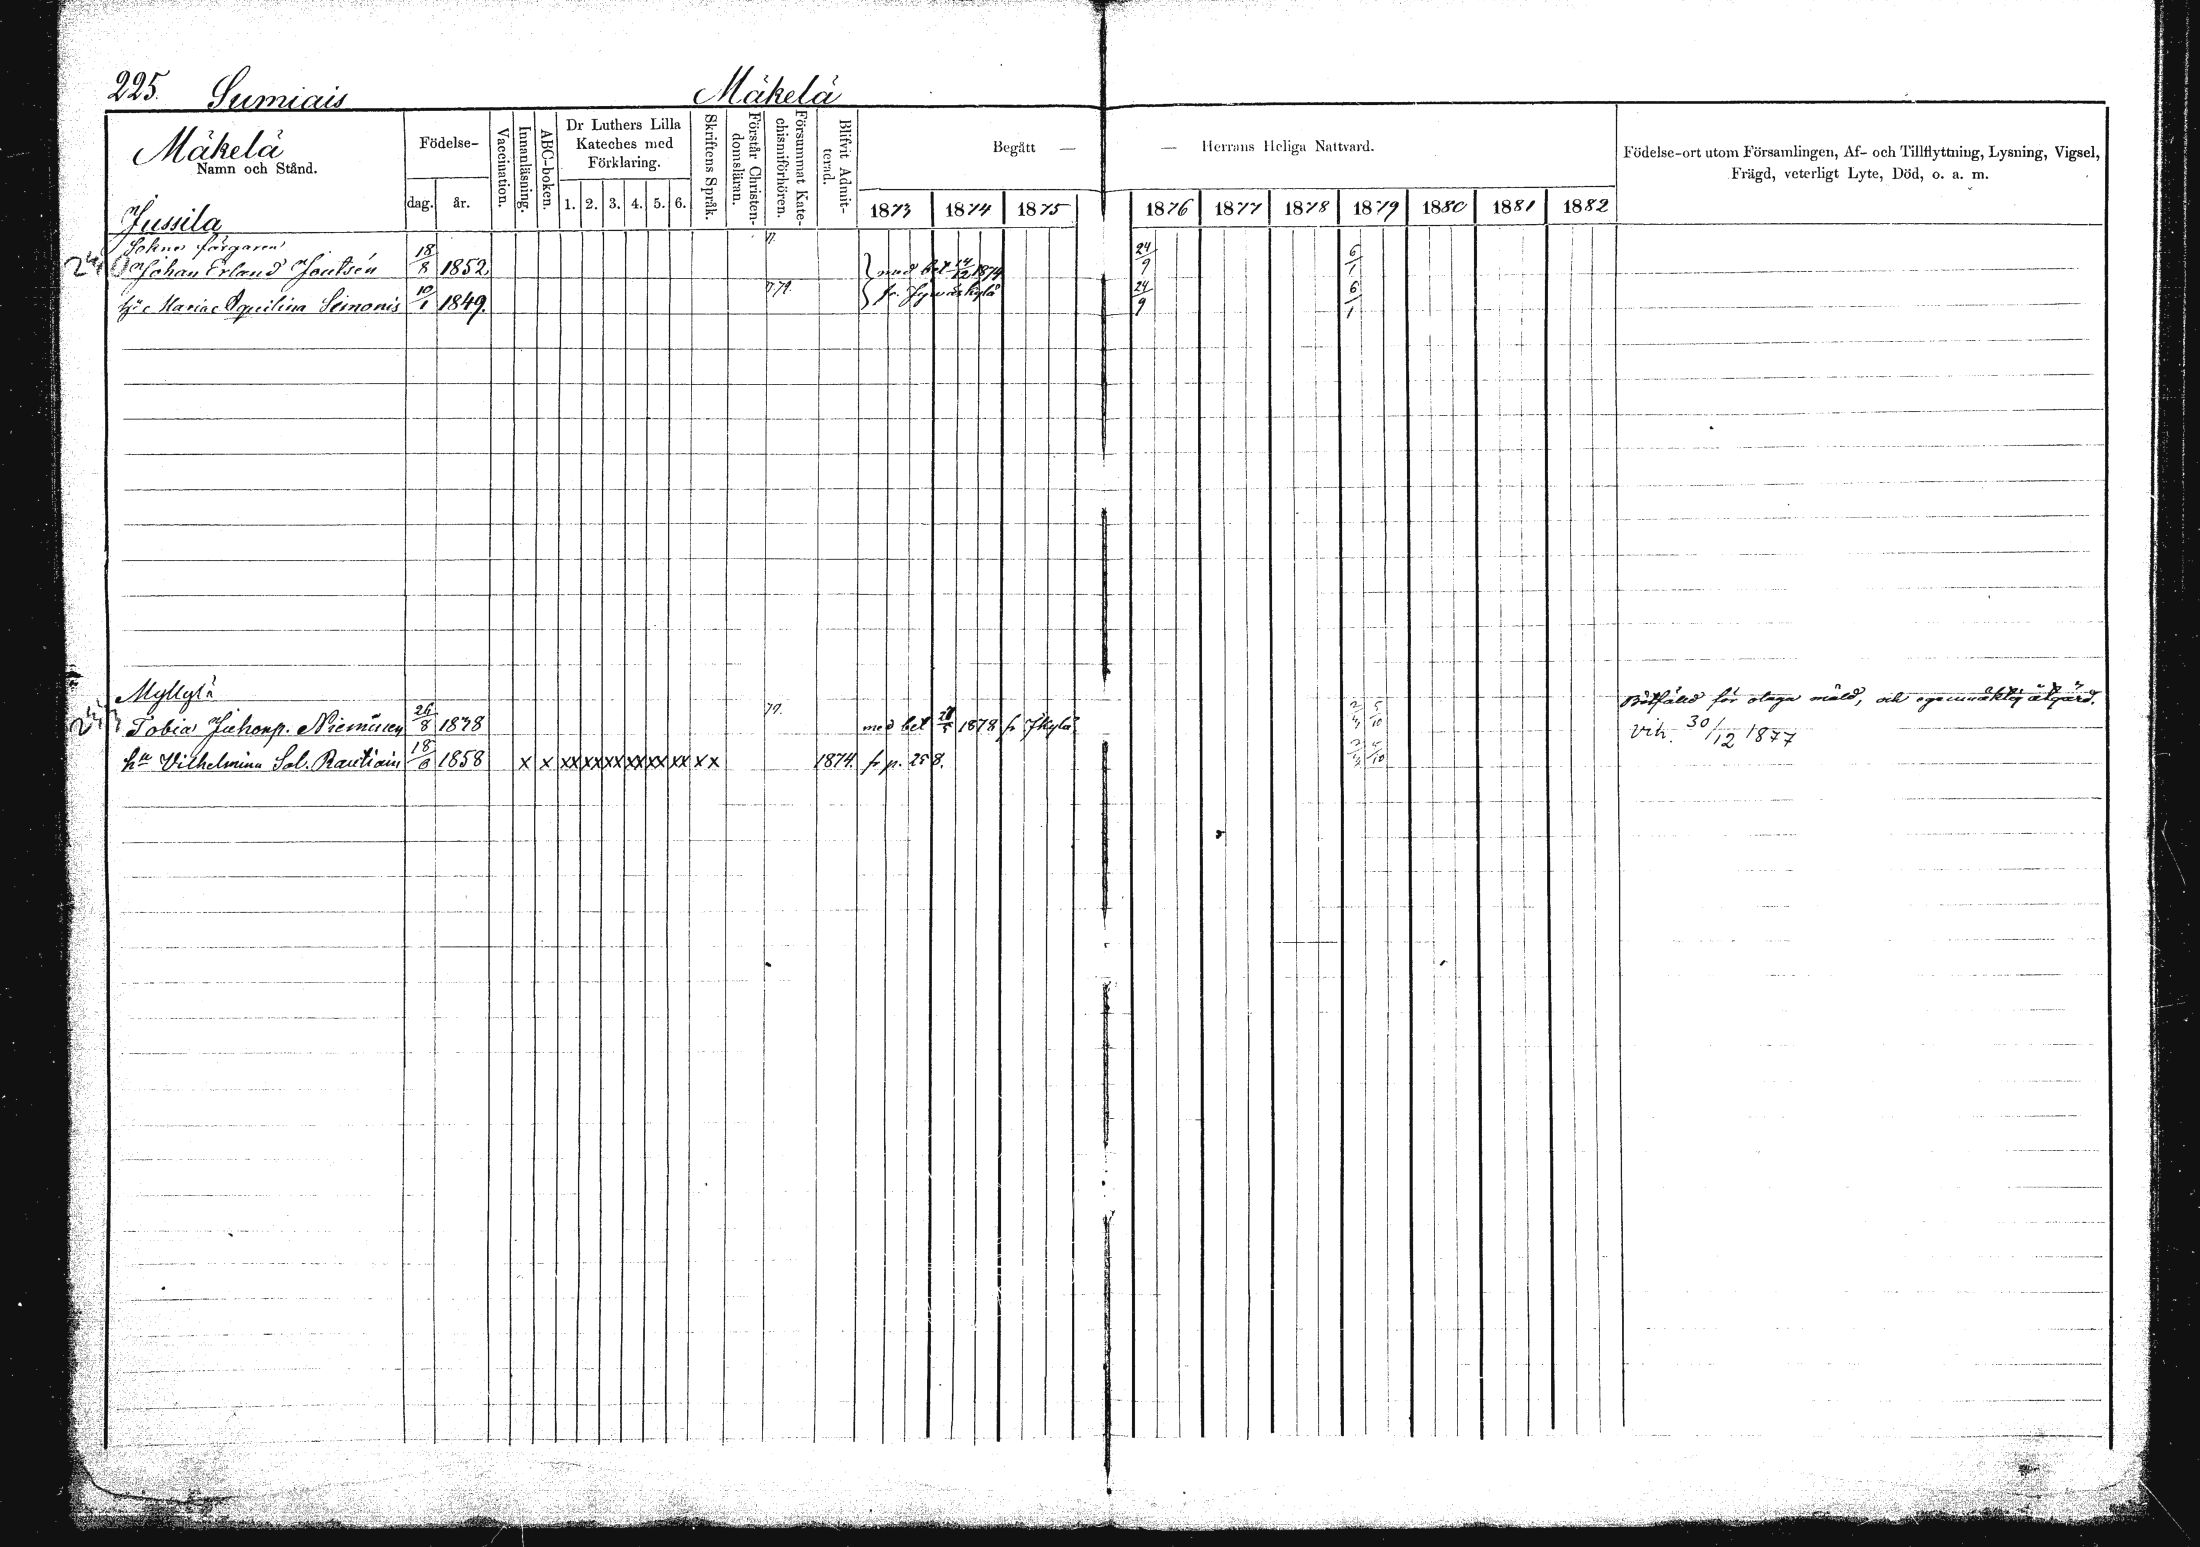 225. Sumiais Mäkelä
Mäkelä
Namn och Stånd.
Födelse-
dag. år.
Vaccination.
Innanläsning.
ABC-boken.
Dr Luthers Lilla
Kateches med
Förklaring.
1. 2. 3. 4. 5. 6.
Skriftens Språk.
Förstår Christen-
domsläran.
Försummat Kate-
chismiförhören.
Blifvit Admit-
terad.
Begått —
— Herrans Heliga Nattvard.
1873 1874 1875 1876 1877 1878 1879 1880 1881 1882
Födelse-ort utom Församlingen, Af- och Tillflyttning, Lysning, Vigsel,
Frägd, veterligt Lyte, Död, o. a. m.
Jussila
Sokne färgaren
Johan Erland Joutsén 18/8 1852. med bet 14/12 1874 24/9 6/1
Maria Aquilina Simonis 10/1 1849. 79. fr. Jywäskylä 24/9 6/1
Myllylä
Tobias Juhonp. Nieminen 26/8 1838 79. med bet 1878 fr Jkylä 5/10
Bötfälld för olaga mäld, och egenmäktig åtgärd.
Vih. 30/12 1877
hu Vilhelmina Sal. Rautiain 18/6 1858 x x xx xx xx xx xx xx x x 1874. fr p. 258.